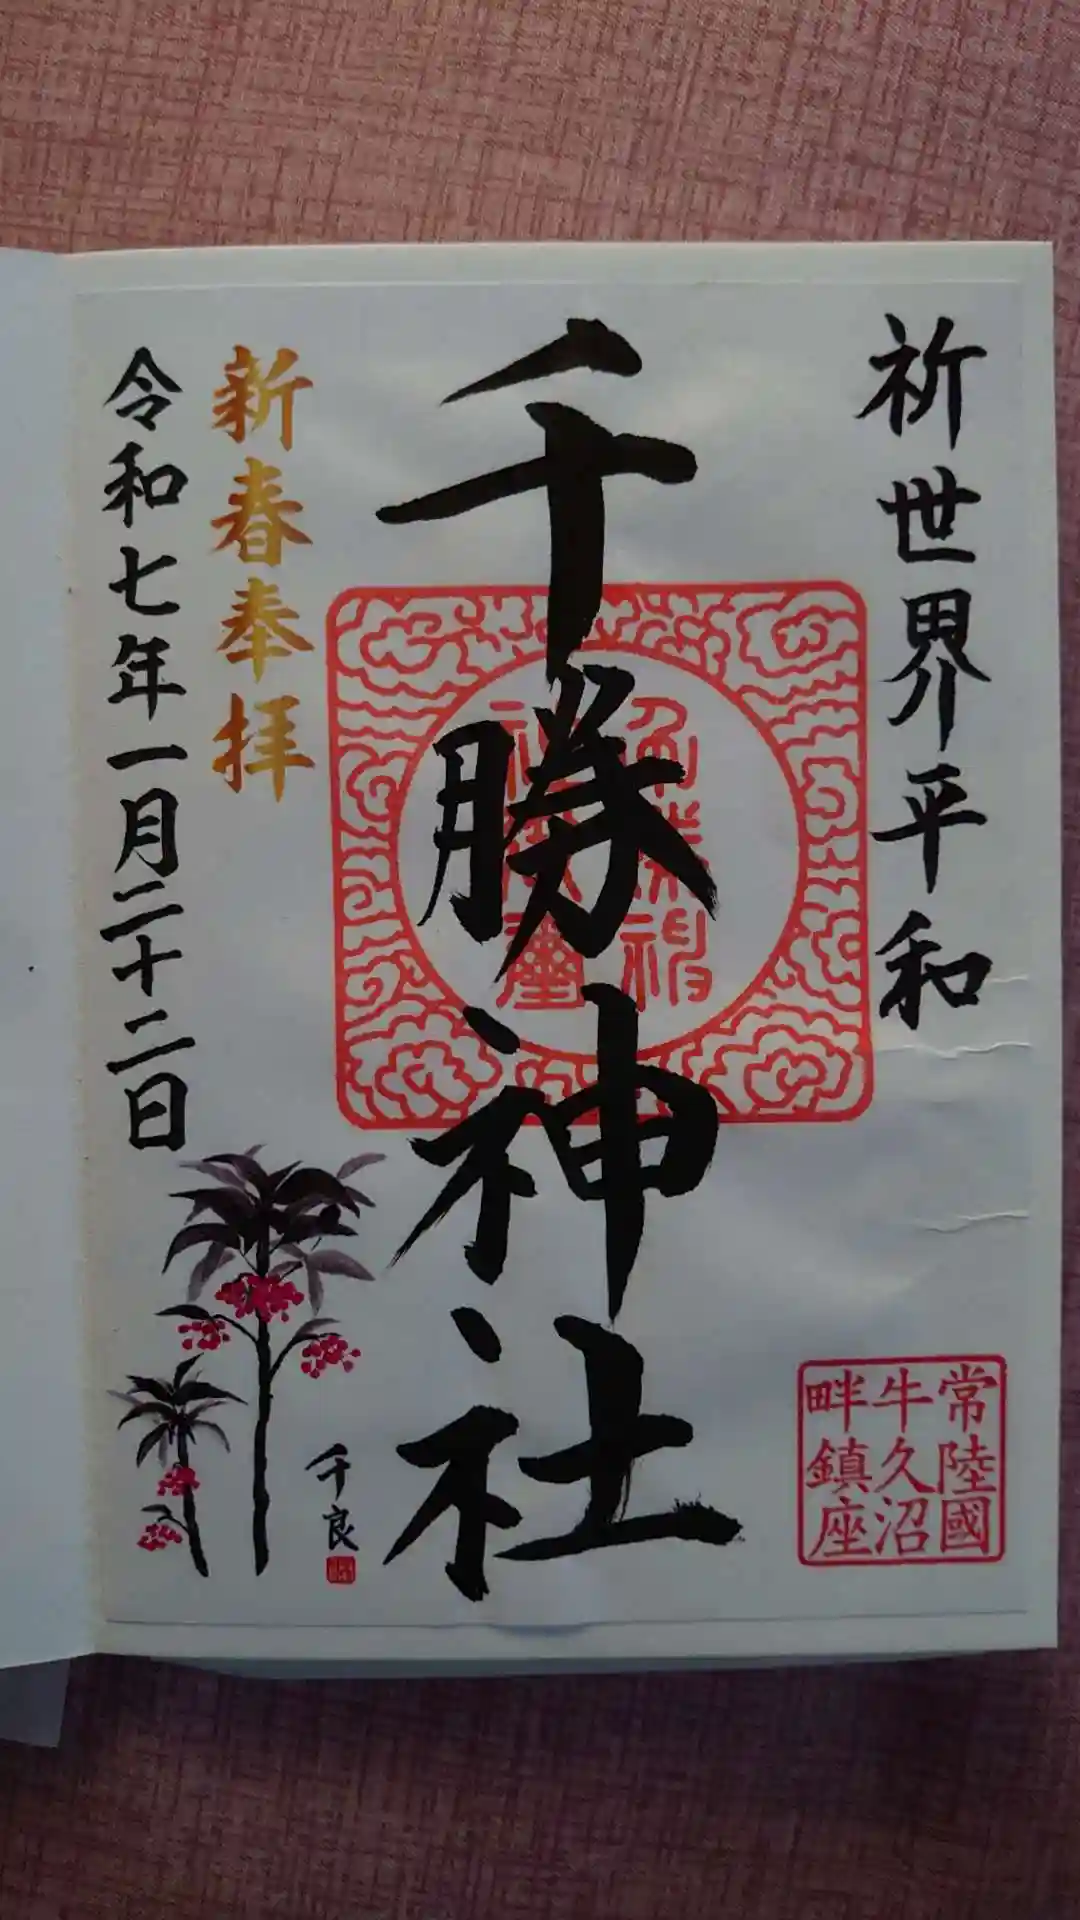 祈世界平和
千勝神社
新春奉拝
令和七年一月二十二日
千良
常陸國
牛久沼
畔鎮座